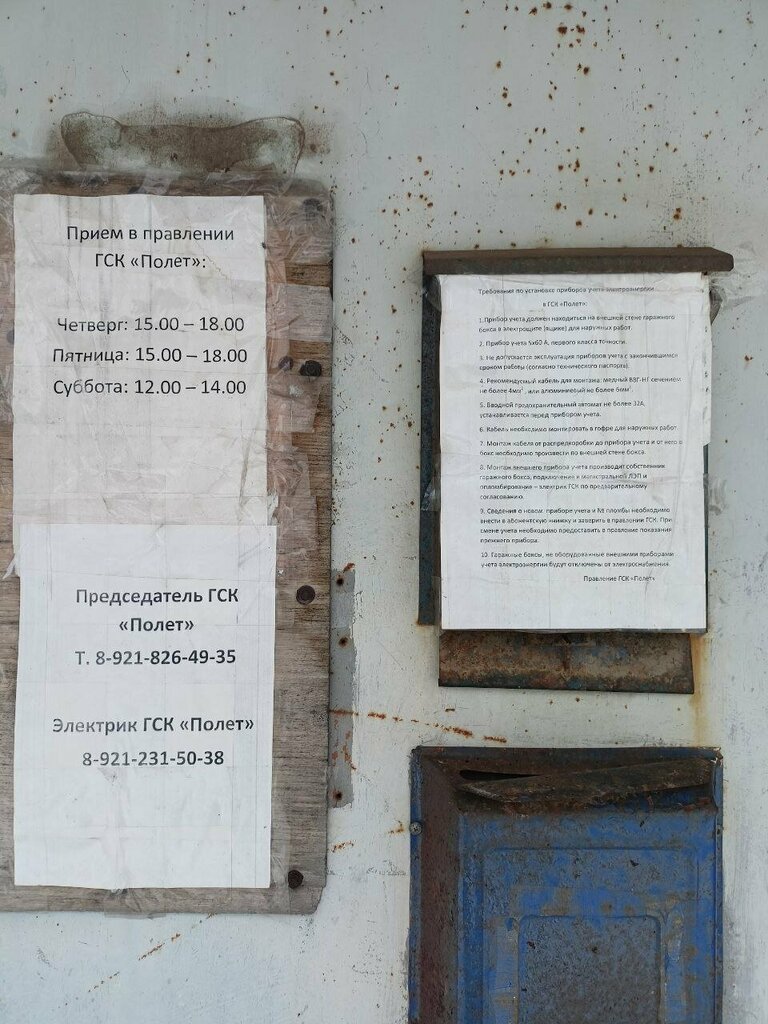 Прием в правлении
ГСК «Полет»:
Четверг: 15.00 – 18.00
Пятница: 15.00 – 18.00
Суббота: 12.00 – 14.00
Председатель ГСК
«Полет»
Т. 8-921-826-49-35
Электрик ГСК «Полет»
8-921-231-50-38
Требования по установке приборов учета электроэнергии
в ГСК «Полет»:
1.Прибор учета должен находиться на внешней стене гаражного
бокса в электрощите (ящике) для наружных работ
2. Прибор учета 5х60 А, первого класса точности.
3. Не допускается эксплуатация приборов учета с закончившимся
сроком работы (согласно технического паспорта).
4. Рекомендуемый кабель для монтажа: медный ВВГ-НГ сечением
не более 4мм², или алюминиевый не более 6мм².
5. Вводной предохранительный автомат не более 32А,
устанавливается перед прибором учета.
6. Кабель необходимо монтировать в гофре для наружных работ
7. Монтаж кабеля от распредкоробки до прибора учета и от него в
бокс необходимо произвести по внешней стене бокса.
8. Монтаж внешнего прибора учета производит собственник
гаражного бокса, подключение к магистральной ЛЭП и
опломбирование – электрик ГСК по предварительному
согласованию.
9. Сведения о новом приборе учета и № пломбы необходимо
внести в абонентскую книжку и заверить в правлении ГСК. При
смене учета необходимо предоставить в правление показания
прежнего прибора.
10. Гаражные боксы, не оборудованные внешними приборами
учета электроэнергии будут отключены от электроснабжения.
Правление ГСК «Полет»